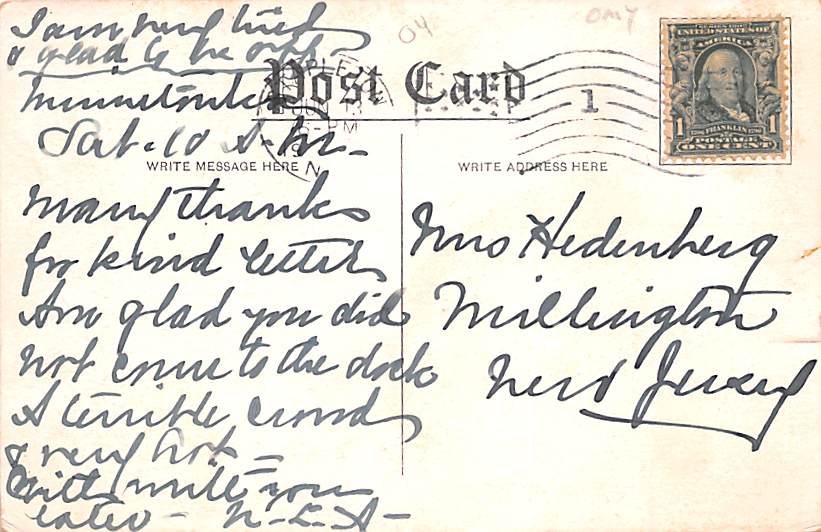 I am very tired
& glad to be off
Minnetonka
Sat. 10 A. M.
Many thanks
for kind letter
Am glad you did
not come to the dock
A terrible crowd
& very hot
Will write you
later - N. L. A.
Post Card
WRITE MESSAGE HERE
WRITE ADDRESS HERE
Mrs Hedenberg
Millington
New Jersey
1
SERIES 1902
UNITED STATES OF
AMERICA
1 FRANKLIN 1
POSTAGE
ONE CENT
04